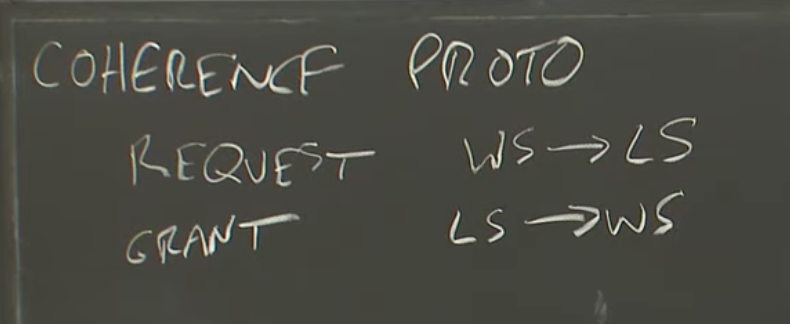 COHERENCE PROTO
REQUEST WS → LS
GRANT LS → WS